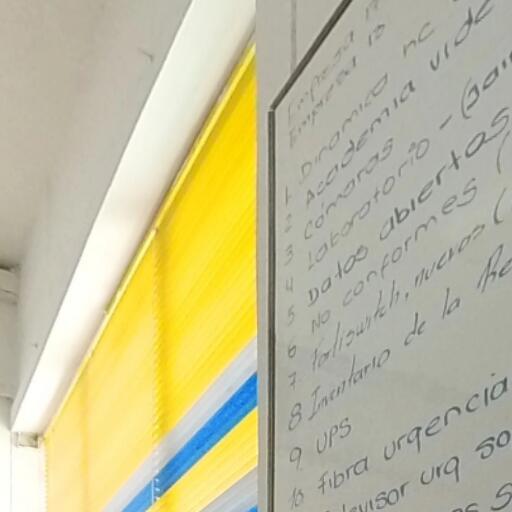 Empresa 17
Empresa 18
1 Dinamica nc
2 Academia vide
3 Cámaras - (Jai
4 Laboratorio
5 Datos abiertos
6 No conformes (
7. Fortiswitch, nuevos (
8 Inventario de la Re
9. UPS
10 Fibra urgencia
Televisor urg so